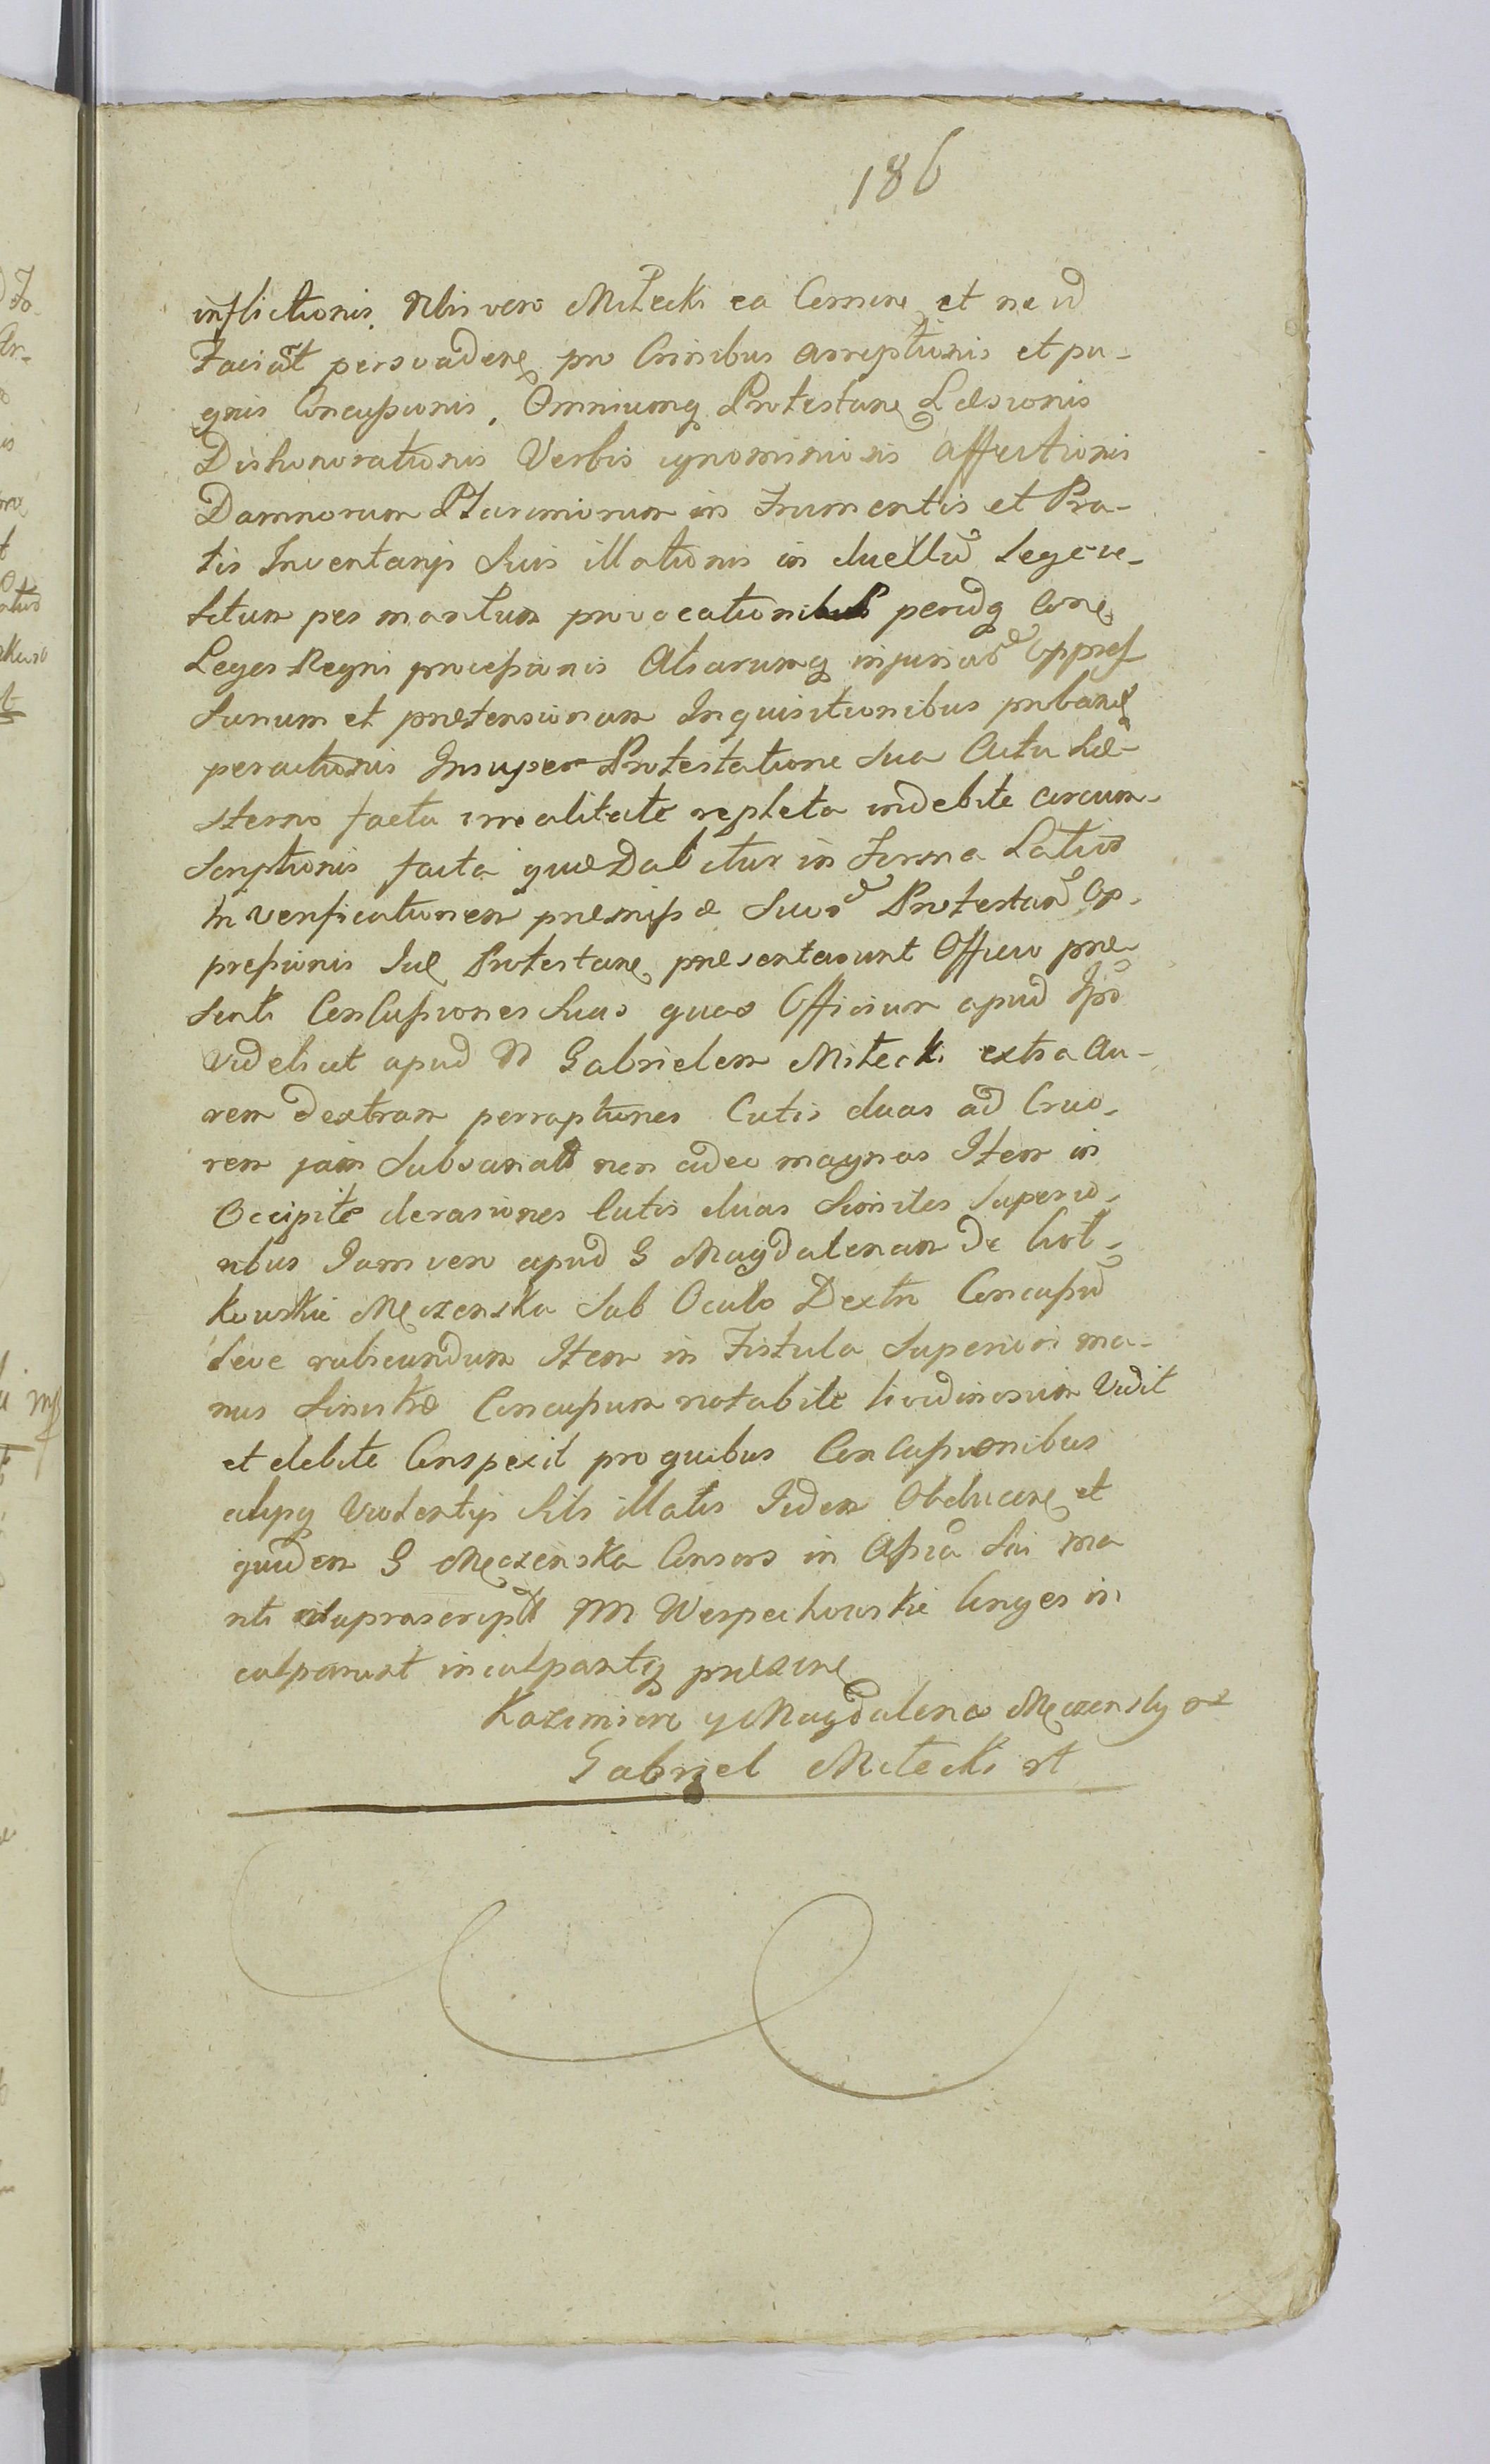 186
inflictionis. Nbis vero Mitecki ea Cernen et ne id
Faciat persvaden pro Crinibus arreptionis et pu-
gnis Concussionis, Omniumq Protestan Læsionis
Dishonorationis Verbis ignominiosis affectionis
Damnorum Plurimorum in Frumentis et Pra-
tis Inventarij Suis illationis in duellu Lege ve-
titum per maritum provocationibus Con
Leges Regni processionis Aliarumq injuriar Oppres
sionum et prætensionum Inquisitionibus proban
peractionis Insuper Protestatione Sua Actu He-
sterno facta irrealitate repleta indebite circum-
scriptionis facta quæ Dabitur in Forma Latior
In verificationem præmissæ Suor Protestan Op-
pressionis Suæ Protestan præsentarunt Officio præ-
senti Conlusiones Suas quas Officium apud Ipso
Videlicet apud N Gabrielem Mitecki extra Au-
rem dextram perraptiones Cutis duas ad Cruo-
rem jam Subsanat non adeo magnas Item in
Occipite derasiones Cutis duas Similes Superio-
ribus Jam vero apud G Magdalenam De
kowskie Męczenska Sub Oculo Dextro Concussu
Leve rubicundum Item in Fistula Superiori ma-
nus Sinistræ Concussum notabile lividinosum Vidit
et debite Conspexit pro quibus Conlusionibus
aliisq Violentijs Sibi illatis Iidem Obducen et
quidem G Męczenska Consors in Assia Sui ma
riti suprascript MM Wespechowskie Conges in
culparunt inculpantq præsen
Kazimierz y Magdalena Męczenscy
Gabryel Mitecki